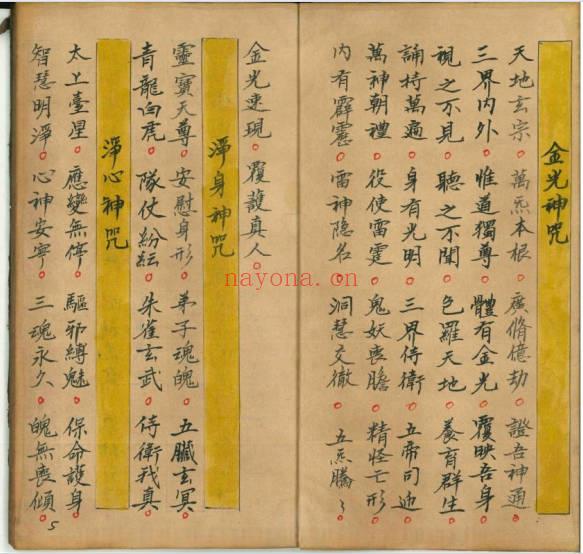 金光神咒
天地玄宗。萬炁本根。廣脩億劫。證吾神通。
三界内外。惟道獨尊。體有金光。覆映吾身。
視之不見。聽之不聞。包羅天地。養育群生。
誦持萬遍。身有光明。三界侍衛。五帝司迎。
萬神朝禮。役使雷霆。鬼妖喪膽。精怪亡形。
内有霹靂。雷神隐名。洞慧交徹。五炁騰〻。
金光速現。覆護真人。
淨身神咒
靈寶天尊。安慰身形。弟子魂魄。五臟玄冥。
青龍白虎。隊仗紛紜。朱雀玄武。侍衛我真。
淨心神咒
太上臺湦。應變無停。驅邪縛魅。保命護身。
智慧明淨。心神安寧。三魂永久。魄無喪傾。
5
nayona.cn